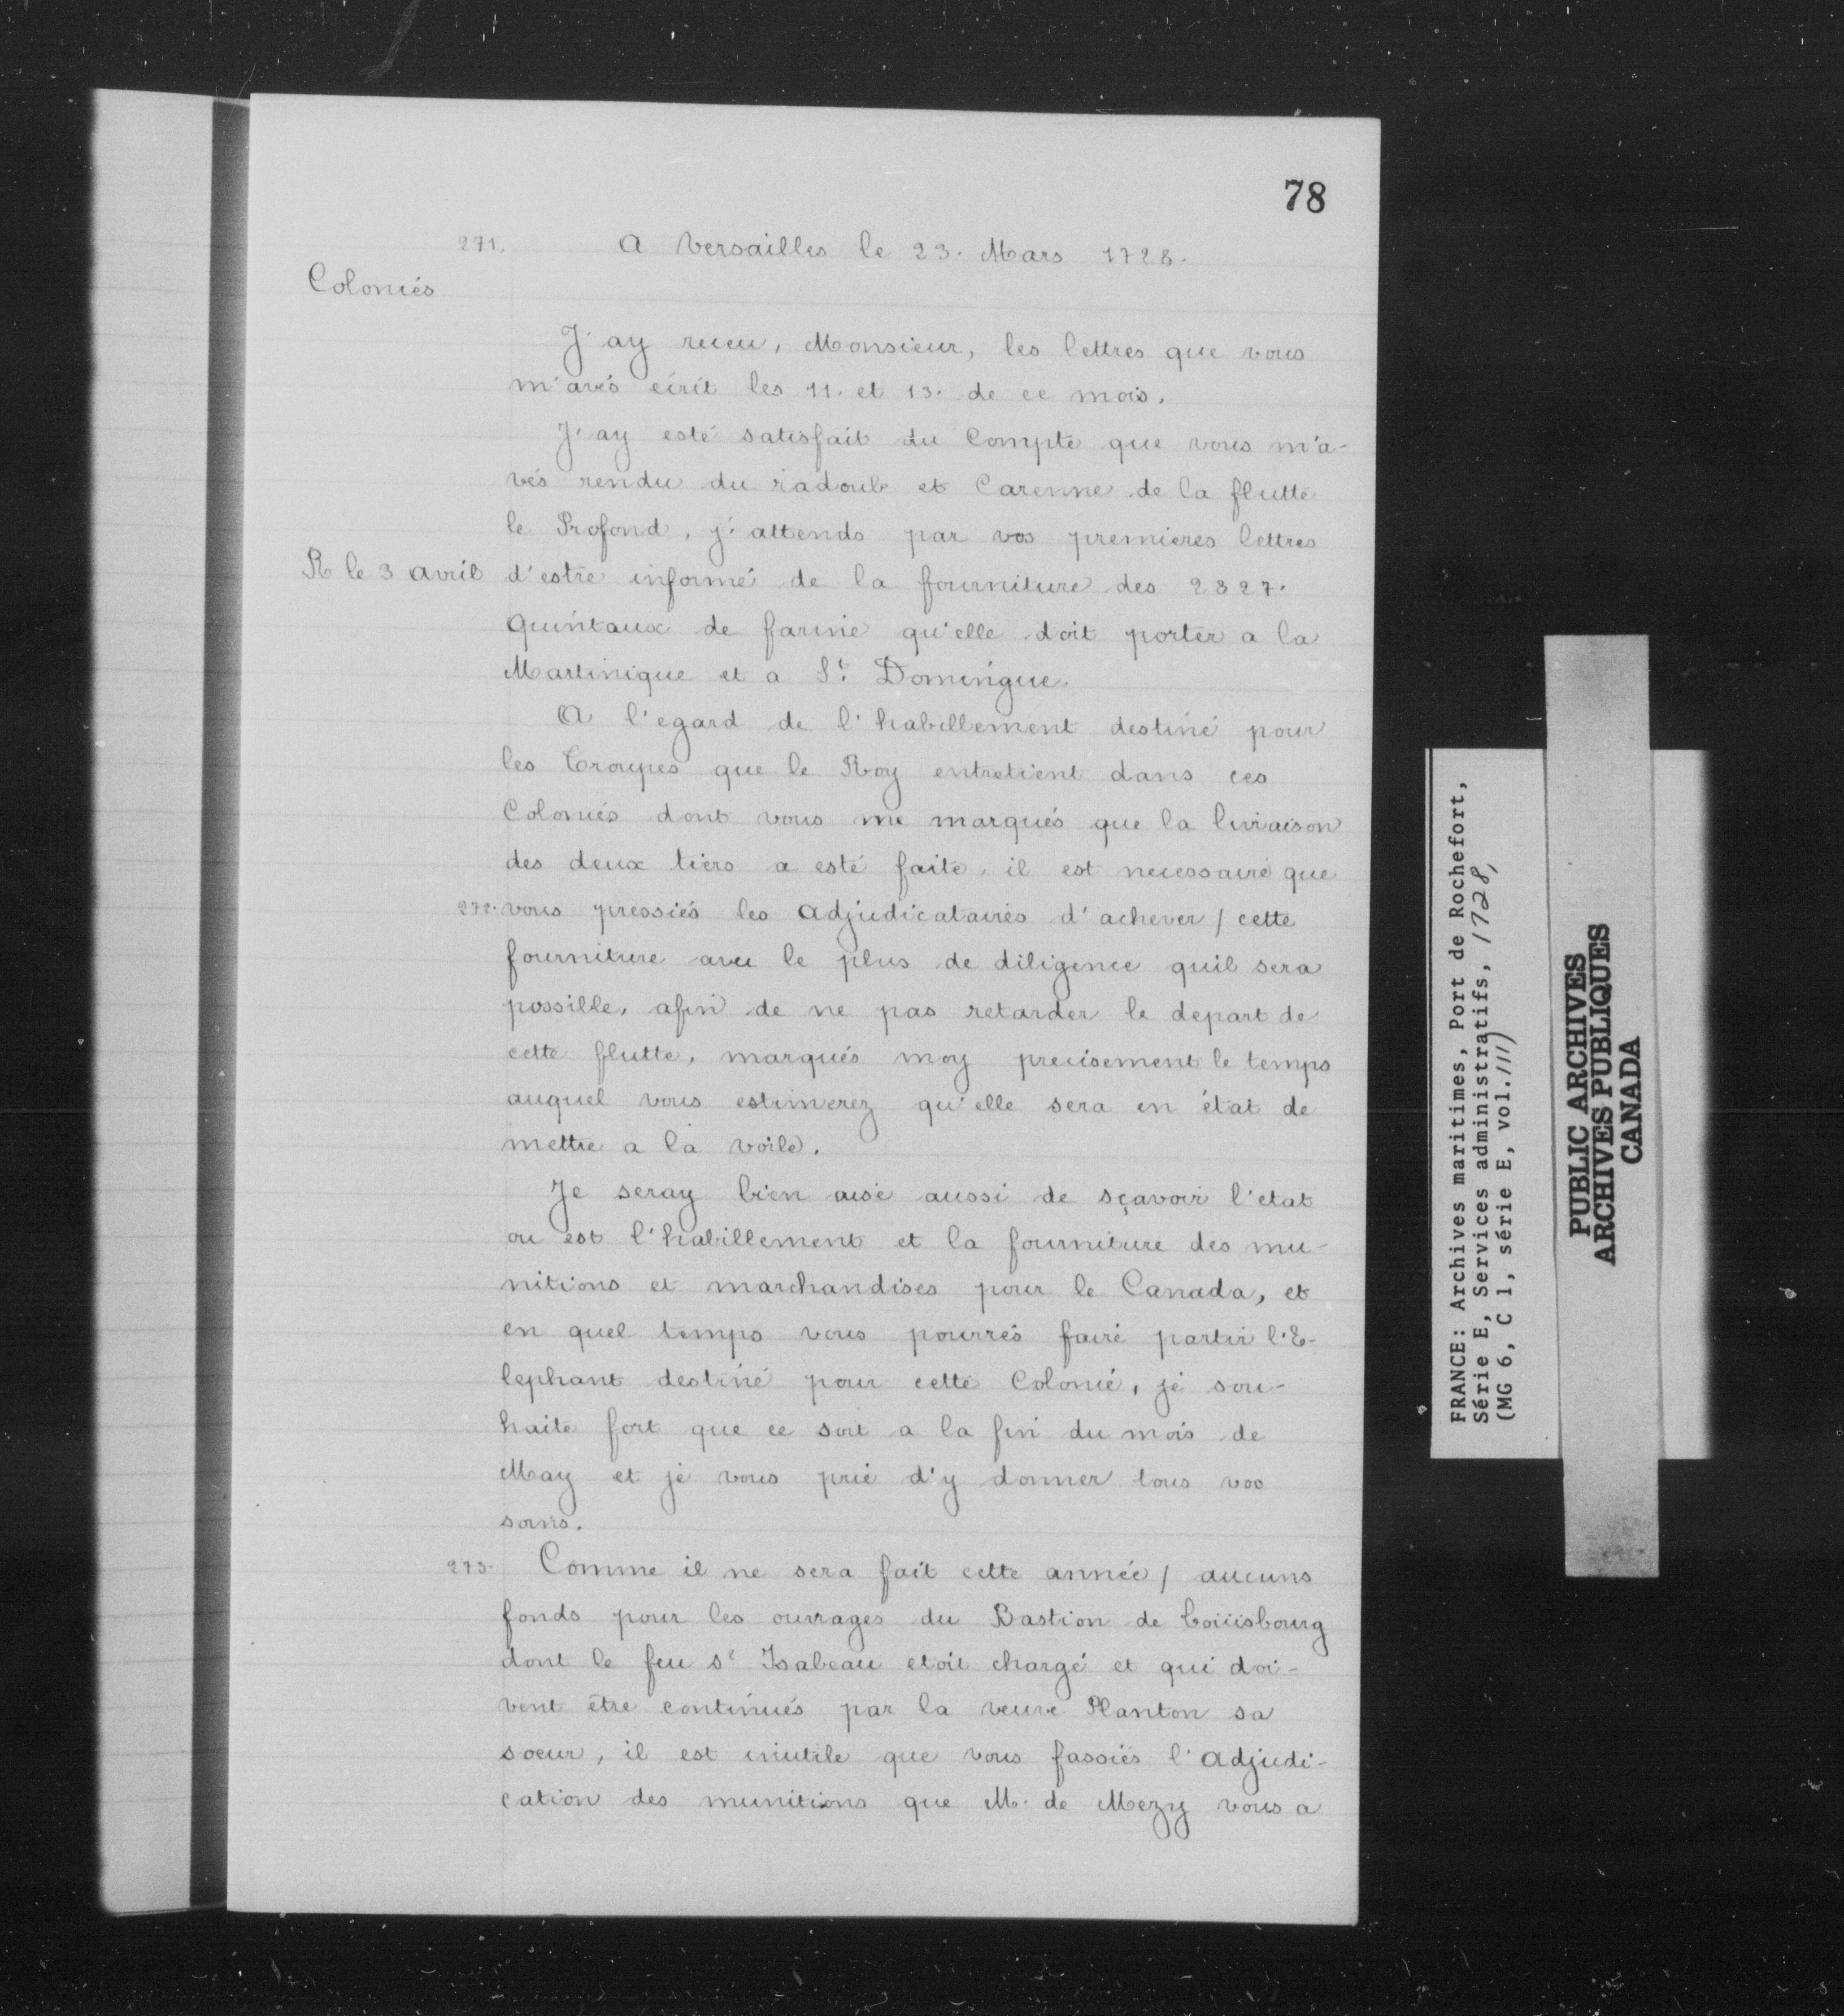 78
271. A Versailles le 23. Mars 1728.
Coloniés
J'ay receu, Monsieur, les lettres que vous
m'avés écrit les 11. et 13. de ce mois.
J'ay esté satisfait du Compte que vous m'a-
vés rendu du radoub et Carenne de la flutte
le Profond, j'attends par vos premieres lettres
R le 3 avril d'estre informé de la fourniture des 2327.
Quintaux de farine qu'elle doit porter a la
Martinique et a St. Domingue.
A l'egard de l'habillement destiné pour
les Troupes que le Roy entretient dans ces
Coloniés dont vous me marqués que la livraison
des deux tiers a esté faite, il est necessaire que
272. vous pressiés les adjudicataires d'achever / cette
fourniture avec le plus de diligence quil sera
possille, afin de ne pas retarder le depart de
cette flutte, marqués moy precisement le temps
auquel vous estimerez qu'elle sera en état de
mettre a la voile.
Je seray bien aise aussi de sçavoir l'etat
ou est l'habillement et la fourniture des mu-
nitions et marchandises pour le Canada, et
en quel temps vous pourrés faire partir l'E-
lephant destiné pour cette Colonié, je sou-
haite fort que ce soit a la fin du mois de
May et je vous prie d'y donner tous vos
soins.
273. Comme il ne sera fait cette année / aucuns
fonds pour les ouvrages du Bastion de Loüisbourg
dont le feu Sr Isabeau etoit chargé et qui doi-
vent être continués par la veuve Planton sa
soeur, il est inutile que vous fassiés l'adjudi-
cation des munitions que M. de Mezy vous a
FRANCE: Archives maritimes, Port de Rochefort,
Série E, Services administratifs, 1728,
(MG 6, C 1, série E, vol.111)
PUBLIC ARCHIVES
ARCHIVES PUBLIQUES
CANADA